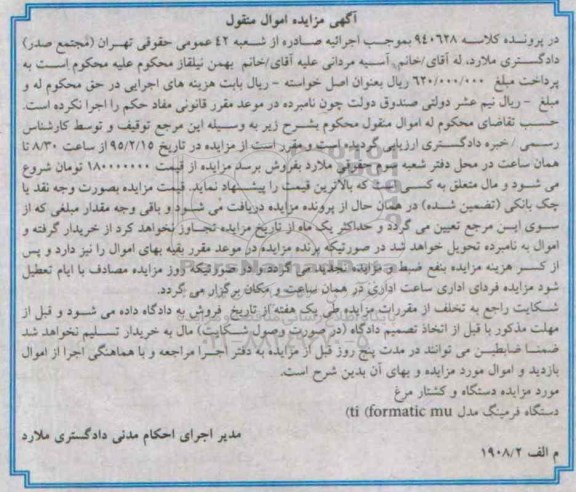 آگهی مزایده اموال منقول
در پرونده کلاسه ۹۴۰۶۲۸ بموجب اجرائیه صادره از شعبه ۴۲ عمومی حقوقی تهران (مجتمع صدر)
دادگستری ملارد، له آقای/خانم آسیه مردانی علیه آقای/خانم بهمن نیلقاز محکوم علیه محکوم است به
پرداخت مبلغ ۶۲۰/۰۰۰/۰۰۰ ریال بعنوان اصل خواسته - ریال بابت هزینه های اجرایی در حق محکوم له و
مبلغ - ریال نیم عشر دولتی صندوق دولت چون نامبرده در موعد مقرر قانونی مفاد حکم را اجرا نکرده است.
حسب تقاضای محکوم له اموال منقول محکوم بشرح زیر به وسیله این مرجع توقیف و توسط کارشناس
رسمی / خبره دادگستری ارزیابی گردیده است و مقرر است از مزایده در تاریخ ۹۵/۲/۱۵ از ساعت ۸/۳۰ تا
همان ساعت در محل دفتر شعبه سوم حقوقی ملارد بفروش برسد مزایده از قیمت ۱۸۰۰۰۰۰۰۰۰ تومان شروع
می شود و مال متعلق به کسی است که بالاترین قیمت را پیشنهاد نماید. قیمت مزایده بصورت وجه نقد یا
چک بانکی (تضمین شده) در همان حال از برنده مزایده دریافت می شود و باقی وجه مقدار مبلغی که از
سوی این مرجع تعیین می گردد و حداکثر یک ماه از تاریخ مزایده تجاوز نخواهد کرد از خریدار گرفته و
اموال به نامبرده تحویل خواهد شد در صورتیکه برنده مزایده در موعد مقرر بقیه بهای اموال را نیز دارد و پس
از کسر هزینه مزایده بنفع ضبط و مزایده تجدید می گردد و در صورتیکه روز مزایده مصادف با ایام تعطیل
شود مزایده فردای اداری ساعت اداری در همان ساعت و مکان برگزار می گردد.
شکایت راجع به تخلف از مقررات مزایده طی یک هفته از تاریخ فروش به دادگاه داده می شود و قبل از
مهلت مذکور با قبل از اتخاذ تصمیم دادگاه (در صورت وصول شکایت) مال به خریدار تسلیم نخواهد شد
ضمنا ضابطین می توانند در مدت پنج روز قبل از مزایده به دفتر اجرا مراجعه و با هماهنگی اجرا از اموال
بازدید و اموال مورد مزایده و بهای آن بدین شرح است.
مورد مزایده دستگاه و کشتار مرغ
دستگاه فرمینگ مدل ti (formatic mu)
مدیر اجرای احکام مدنی دادگستری ملارد
م الف ۱۹۰۸/۲